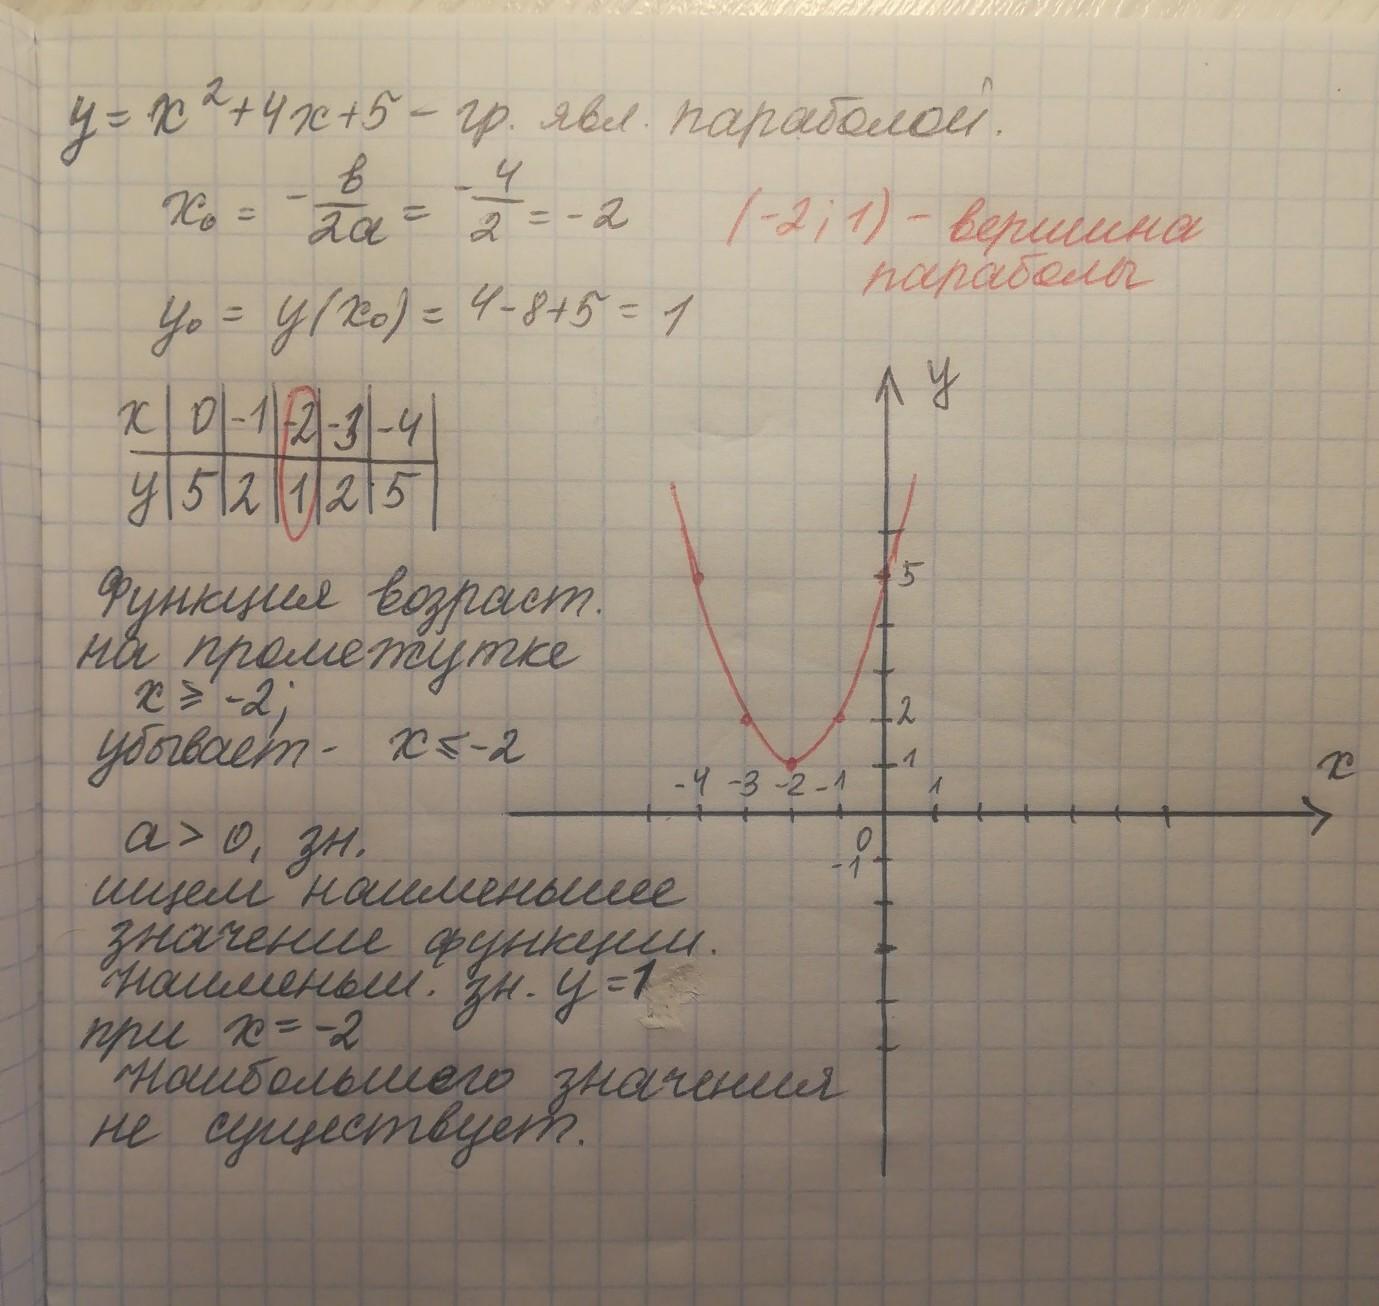 y = x² + 4x + 5 – гр. явл. параболой.
x₀ = -b/2a = -4/2 = -2
(-2; 1) – вершина
параболы
y₀ = y(x₀) = 4-8+5 = 1
x | 0 | -1 | -2 | -3 | -4 |
y | 5 | 2 | 1 | 2 | 5 |
Функция возраст.
на промежутке
x ⩾ -2;
убывает - x ⩽ -2
a > 0, зн.
ищем наименьшее
значение функции.
Наименьш. зн. y = 1
при x = -2
Наибольшего значения
не существует.
y
5
2
1
-4 -3 -2 -1 1
x
0
-1